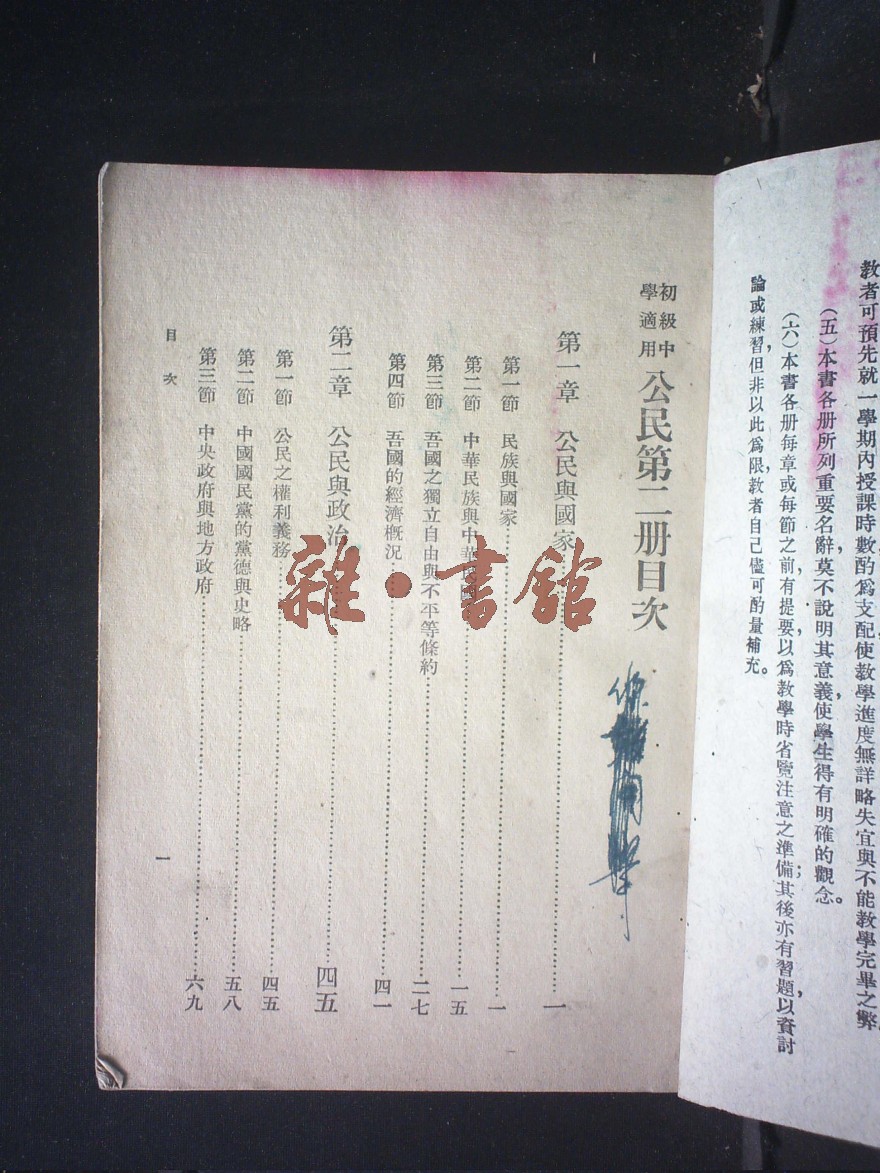 教者可預先就一學期內授課時數酌爲支配使教學進度無詳略失宜與不能教學完畢之弊。
(五)本書各册所列重要名辭莫不說明其意義，使學生得有明確的觀念。
(六)本書各册每章或每節之前，有提要以爲教學時省覽注意之準備；其後亦有習題，以資討
論或練習，但非以此爲限，教者自己儘可酌量補充。
初級中學適用 公民第二册目次
第一章 公民與國家 一
第一節 民族與國家 一
第二節 中華民族與中華 一五
第三節 吾國之獨立自由與不平等條約 二七
第四節 吾國的經濟概況 四一
第二章 公民與政治 四五
第一節 公民之權利義務 四五
第二節 中國國民黨的黨德與史略 五八
第三節 中央政府與地方政府 六九
目次
一
雜·書館